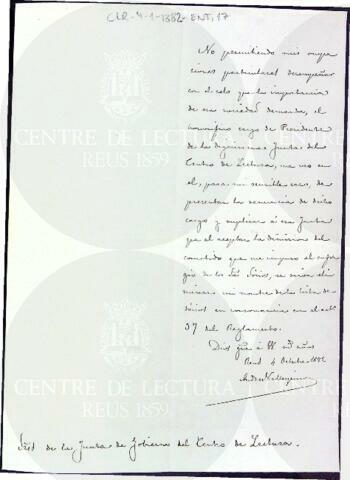 CLR-4-1-1882-ENT,17
No permitiendo mis ocupa
ciones particulares desempeñar
con el celo que la importancia
de esa sociedad demanda, el
honorífico cargo de Presidente
de la dignisima Junta del
Centro de Lectura, me veo en
el, para mi sensible caso, de
presentar la renuncia de dicho
cargo y suplicar á esa Junta
que al aceptar la dimision del
cometido que me impuso el sufra
gio de los Sres Socios, se sirva eli
minar mi nombre de la lista de
sócios en consonancia con el art
37 del Reglamento.
Dios gue á VV ms años
Reus 4 Octubre 1882
Sres de la Junta de Gobierno del Centro de Lectura.
CENTRE DE LECTURA
REUS 1859
CENTRE DE LECTURA
REUS 1859
CENTRE DE LECTURA
REUS 1859.